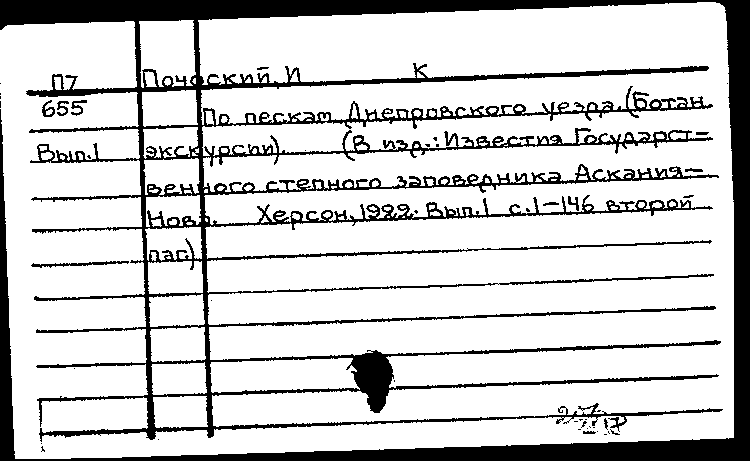 П7 Почоский, И К
655 По пескам Днепровского уезда. (Ботан.
Вып.1 экскурсии). (В изд.: Известия Государст=
венного степного заповедника Аскания=
Нова. Херсон, 1922. Вып.1 с.1-146 второй
паг)